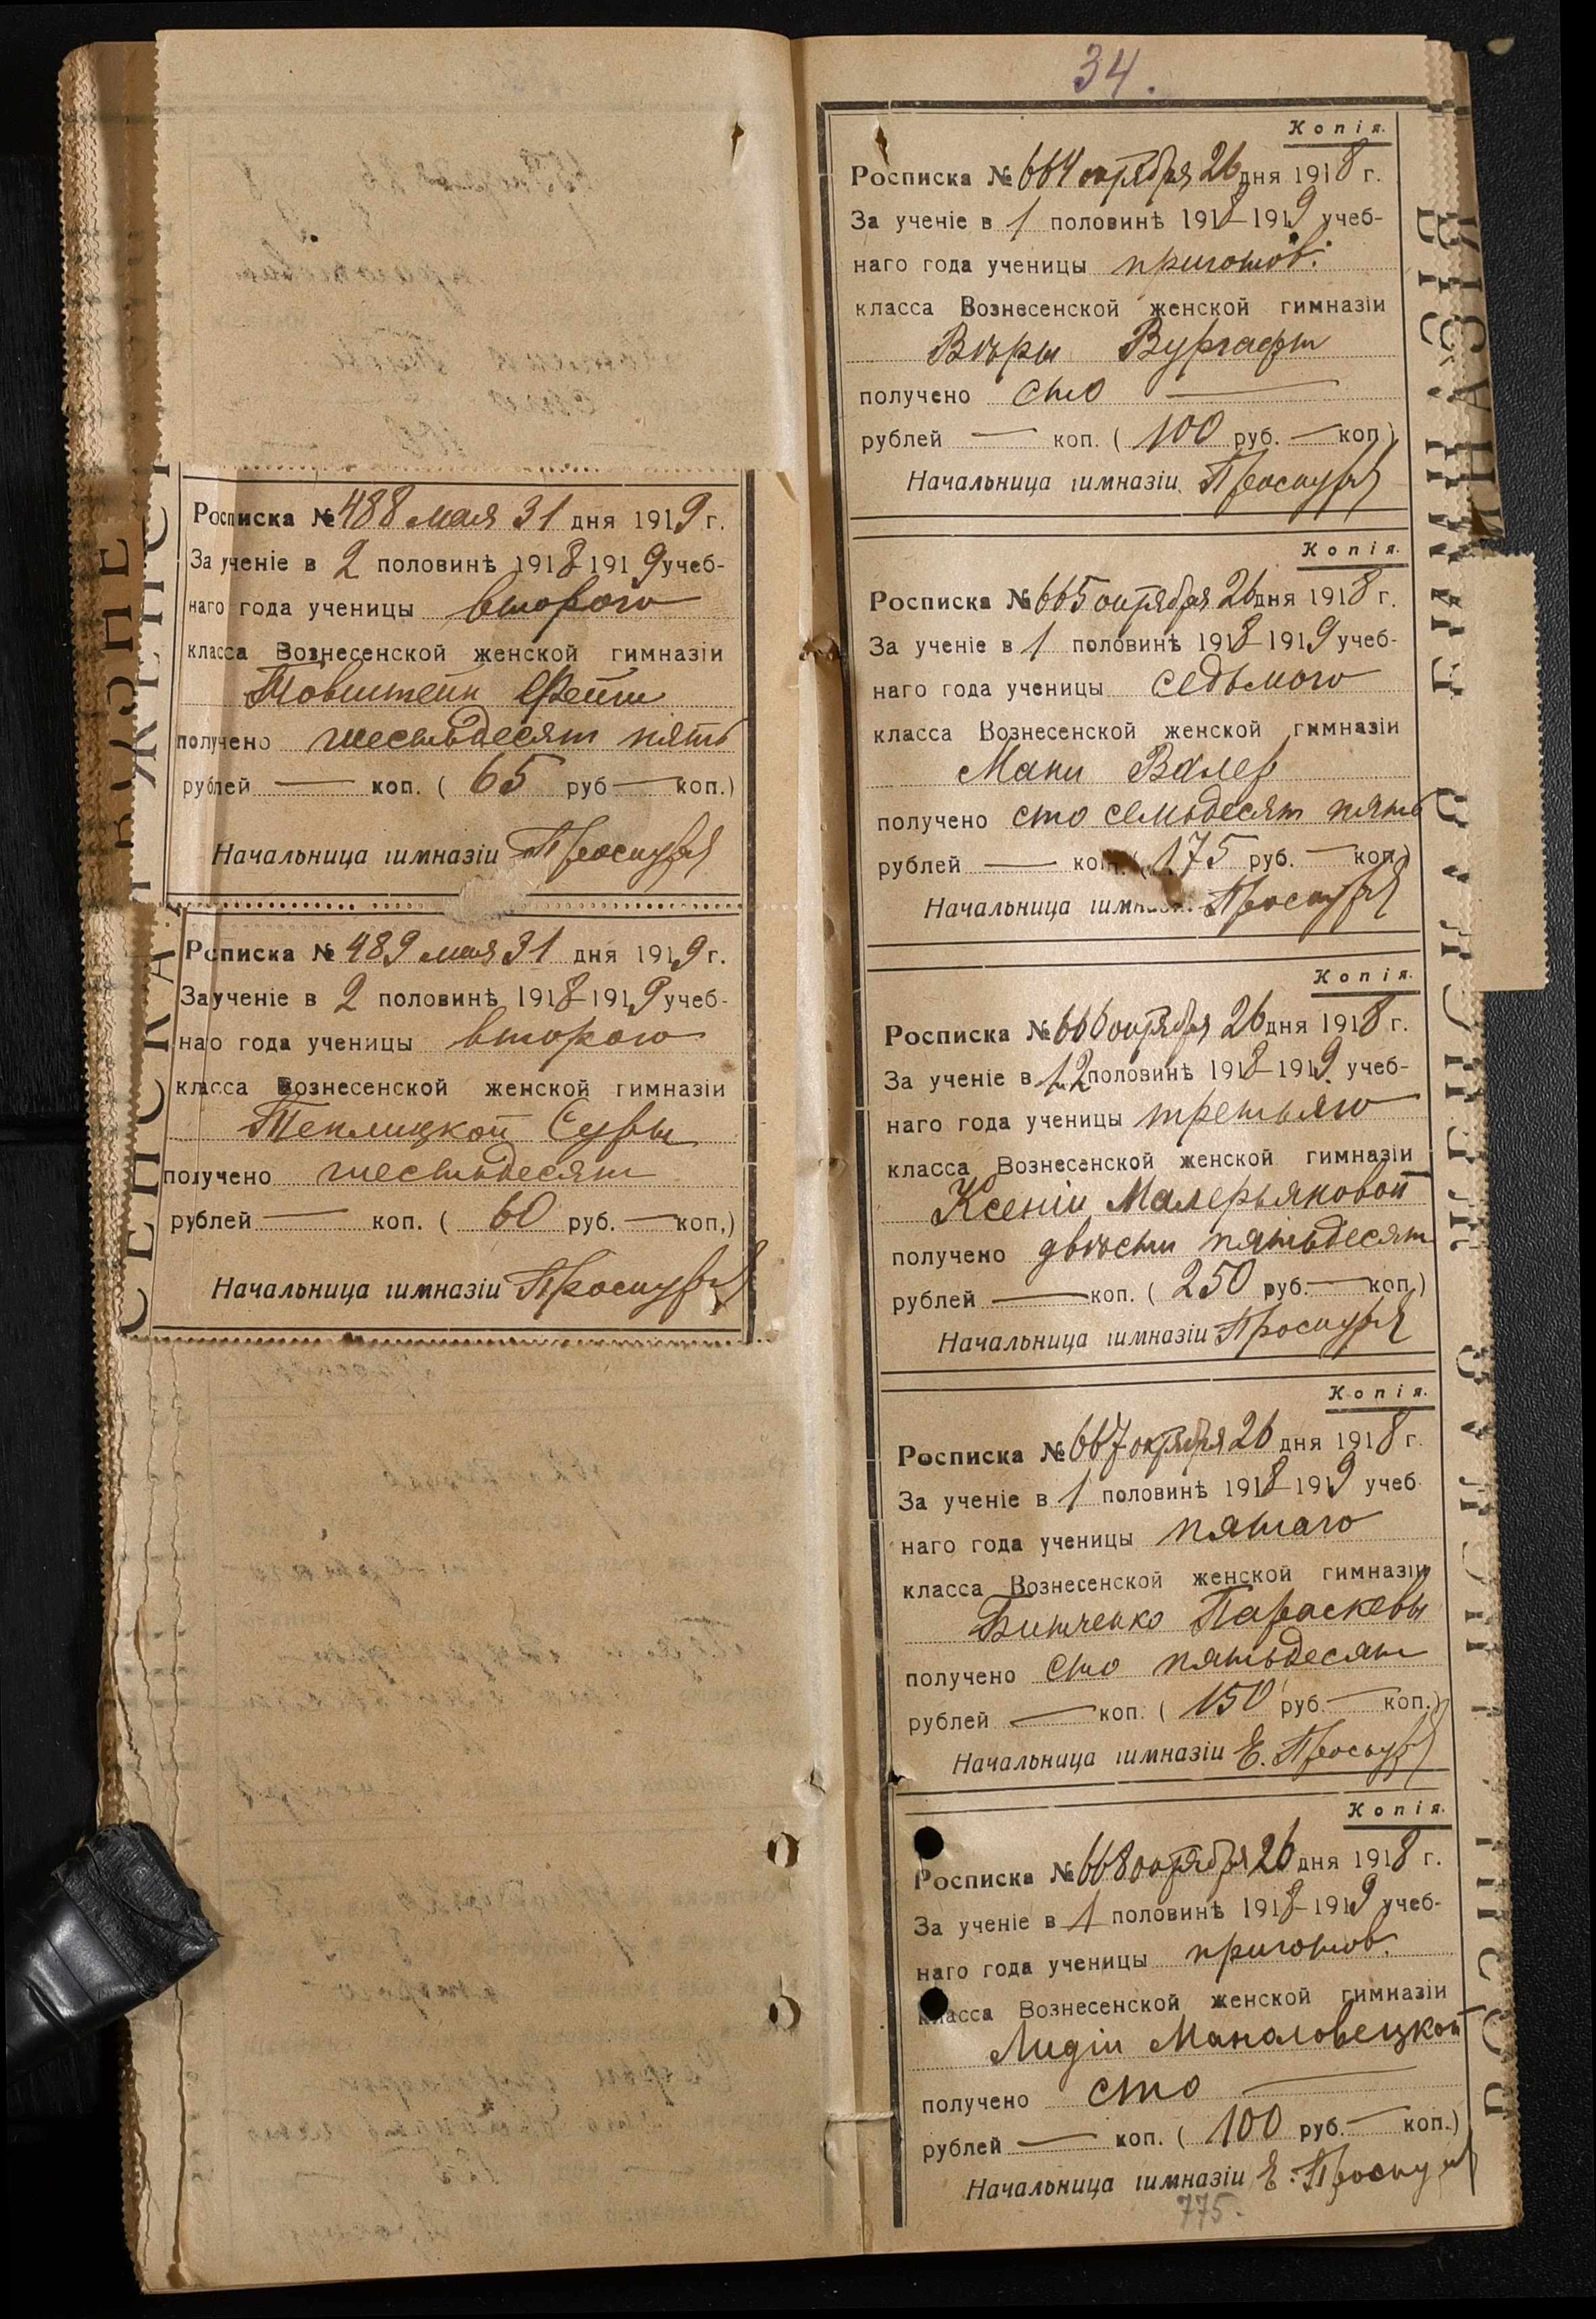 Росписка № 488 мая 31 дня 1919 г.
За ученіе в 2 половинѣ 1918-1919 учеб-
наго года ученицы второго
класса Вознесенской женской гимназіи
Товштейн Фейги
получено шестьдесят пять
рублей — коп. ( 65 руб — коп.)
Начальница гимназіи
Росписка № 489 мая 31 дня 1919 г.
За ученіе в 2 половинѣ 1918-1919 учеб-
наго года ученицы второго
класса Вознесенской женской гимназіи
Теплицкой Суры
получено шестьдесят
рублей — коп. ( 60 руб. — коп.)
Начальница гимназіи
34.
Копія.
Росписка № 664 октября 26 дня 1918 г.
За ученіе в 1 половинѣ 1918-1919 учеб-
наго года ученицы приготов.
класса Вознесенской женской гимназіи
Вѣры Вургафт
получено сто —
рублей — коп. ( 100 руб. — коп)
Начальница гимназіи
Копія.
Росписка № 665 октября 26 дня 1918 г.
За ученіе в 1 половинѣ 1918-1919 учеб-
наго года ученицы седьмого
класса Вознесенской женской гимназіи
Мани Валер
получено сто семьдесят пять
рублей — коп. ( 175 руб. — коп)
Начальница гимназіи
Копія.
Росписка № 666 октября 26 дня 1918 г.
За ученіе в 1 и 2 половинѣ 1918-1919 учеб-
наго года ученицы третьяго
класса Вознесенской женской гимназіи
Ксеніи Малерьяновой
получено двѣсти пятьдесят
рублей — коп. ( 250 руб. — коп.)
Начальница гимназіи
Копія.
Росписка № 667 октября 26 дня 1918 г.
За ученіе в 1 половинѣ 1918-1919 учеб
наго года ученицы пятаго
класса Вознесенской женской гимназіи
Битченко Параскевы
получено сто пятьдесят
рублей — коп. ( 150 руб — коп.)
Начальница гимназіи Е.
Копія.
Росписка № 668 октября 26 дня 1918 г.
За ученіе в 1 половинѣ 1918-1919 учеб-
наго года ученицы приготов.
класса Вознесенской женской гимназіи
Лидіи Маналовецкой
получено сто —
рублей — коп. ( 100 руб. — коп.)
Начальница гимназіи Е.
775.